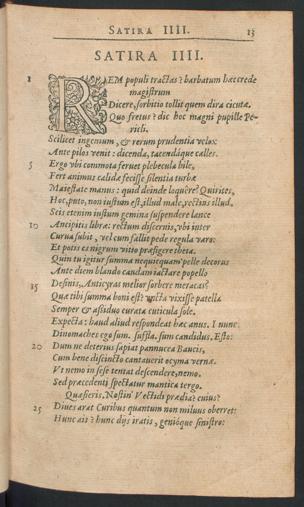 SATIRA IIII. 13
SATIRA IIII.
1 REM populi tractas? barbatum hæc crede
magistrum
Dicere, sorbitio tollit quem dira cicutæ.
Quo fretus? dic hoc magni pupille Pe-
ricli.
Scilicet ingenium, & rerum prudentia velox
Ante pilos venit: dicenda, tacendáque calles.
5 Ergo vbi commota feruet plebecula bile,
Fert animus calidæ fecisse silentia turbæ
Maiestate manus: quid deinde loquêre? Quirites,
Hoc, puto, non iustum est, illud male, rectius illud.
Scis etenim iustum gemina suspendere lance
10 Ancipitis libræ: rectum discernis, vbi inter
Curua subit, vel cum fallit pede regula varo:
Et potis es nigrum vitio præfigere theta.
Quin tu igitur summa nequicquam pelle decorus
Ante diem blando caudam iactare popello
15 Desinis, Anticyras melior sorbere meracas?
Quæ tibi summa boni est? vncta vixisse patella
Semper & assiduo curata cuticula sole.
Expecta: haud aliud respondeat hæc anus. I nunc,
Dinomaches ego sum. suffla. sum candidus, Esto:
20 Dum ne deterius sapiat pannucea Baucis,
Cum bene discincto cantauerit ocyma vernæ.
Vt nemo in sese tentat descendere, nemo,
Sed præcedenti spectatur mantica tergo.
Quæsieris, Nostin' Vectidi prædia? cuius?
25 Diues arat Curibus quantum non miluus oberret:
Hunc ais? hunc dijs iratis, genióque sinistro: